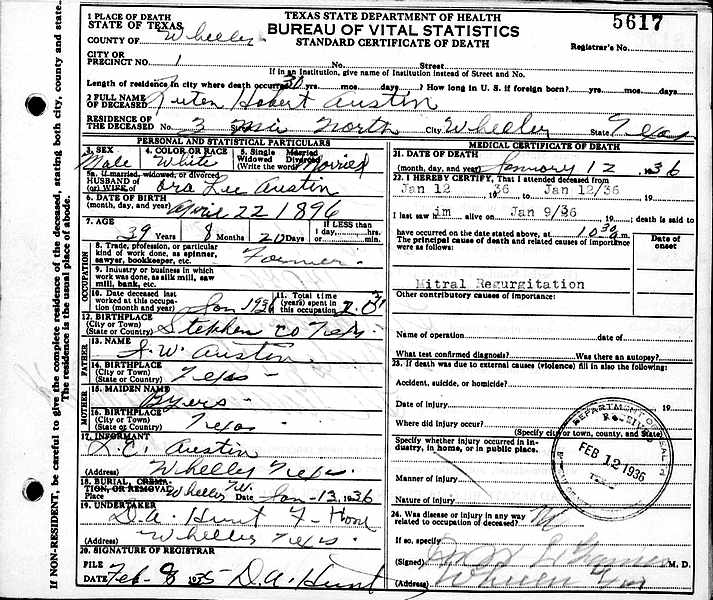 TEXAS STATE DEPARTMENT OF HEALTH
BUREAU OF VITAL STATISTICS
STANDARD CERTIFICATE OF DEATH
5617
Registrar's No.
IF NON-RESIDENT, be careful to give the complete residence of the deceased, stating both city, county and state.
The residence is the usual place of abode.
1 PLACE OF DEATH
STATE OF TEXAS
COUNTY OF Wheeler
CITY OR
PRECINCT NO. 1 No. Street
If in an Institution, give name of Institution instead of Street and No.
Length of residence in city where death occurred 30 yrs. mos. days. ? How long in U. S. if foreign born? yrs. mos. days
2 FULL NAME
OF DECEASED Hobert Austin
RESIDENCE OF
THE DECEASED No. 3 mi North City Wheeler State Texas
PERSONAL AND STATISTICAL PARTICULARS
3. SEX Male
4. COLOR OR RACE White
5. Single Married Widowed Divorced (Write the word) Married
5a. If married, widowed, or divorced
HUSBAND OF
(or) WIFE OF Ora Lee Austin
6. DATE OF BIRTH
(month, day, and year) April 22 1896
7. AGE 39 Years 8 Months 20 Days IF LESS than 1 day hours min.
OCCUPATION
8. Trade, profession, or particular
kind of work done, as spinner,
sawyer, bookkeeper, etc. Farmer
9. Industry or business in which
work was done, as silk mill, saw
mill, bank, etc.
10. Date deceased last
worked at this occupation
(month and year) Jan 1936
11. Total time
(years) spent in
this occupation
12. BIRTHPLACE
(City or Town)
(State or Country) Stephen Co Texas
FATHER
13. NAME W. Austin
14. BIRTHPLACE
(City or Town)
(State or Country) Texas
MOTHER
15. MAIDEN NAME Byers
16. BIRTHPLACE
(City or Town)
(State or Country) Texas
17. INFORMANT Austin
(Address) Wheeler Texas
18. BURIAL, CREMATION, OR REMOVAL
Place Wheeler Date Jan-13, 1936
19. UNDERTAKER D.A. Hunt F-Home
(Address) Wheeler Texas
20. SIGNATURE OF REGISTRAR
FILE
DATE Feb 1935 D.A. Hunt
MEDICAL CERTIFICATE OF DEATH
21. DATE OF DEATH
(month, day, and year) January 12 1936
22. I HEREBY CERTIFY, That I attended deceased from
Jan 12 1936 to Jan 12/36 19
I last saw him alive on Jan 9/36 19 ; death is said to
have occurred on the date stated above, at 10 30 m.
The principal cause of death and related causes of importance
were as follows:
Date of
onset
Mitral Regurgitation
Other contributory causes of importance:
Name of operation date of
What test confirmed diagnosis? Was there an autopsy?
23. If death was due to external causes (violence) fill in also the following:
Accident, suicide, or homicide?
Date of injury 19
Where did injury occur?
(Specify city or town, county, and State)
Specify whether injury occurred in industry, in home, or in public place.
Manner of injury
Nature of injury
24. Was disease or injury in any way
related to occupation of deceased?
If so, specify
(Signed) M. D.
(Address)
RECEIVED
FEB 12 1936
TEXAS